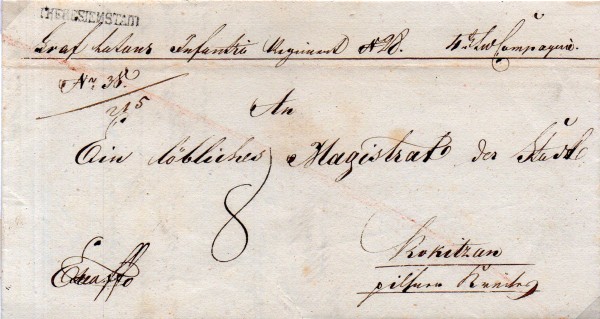 THERESIENSTADT
Graf Latour Infantrie Regiment No 28. 4te Compagnie.
No 35.
215
An
Ein löbliches Magistrat der Stadt
8
Rokitzan
Exoffo pilsner Kreises